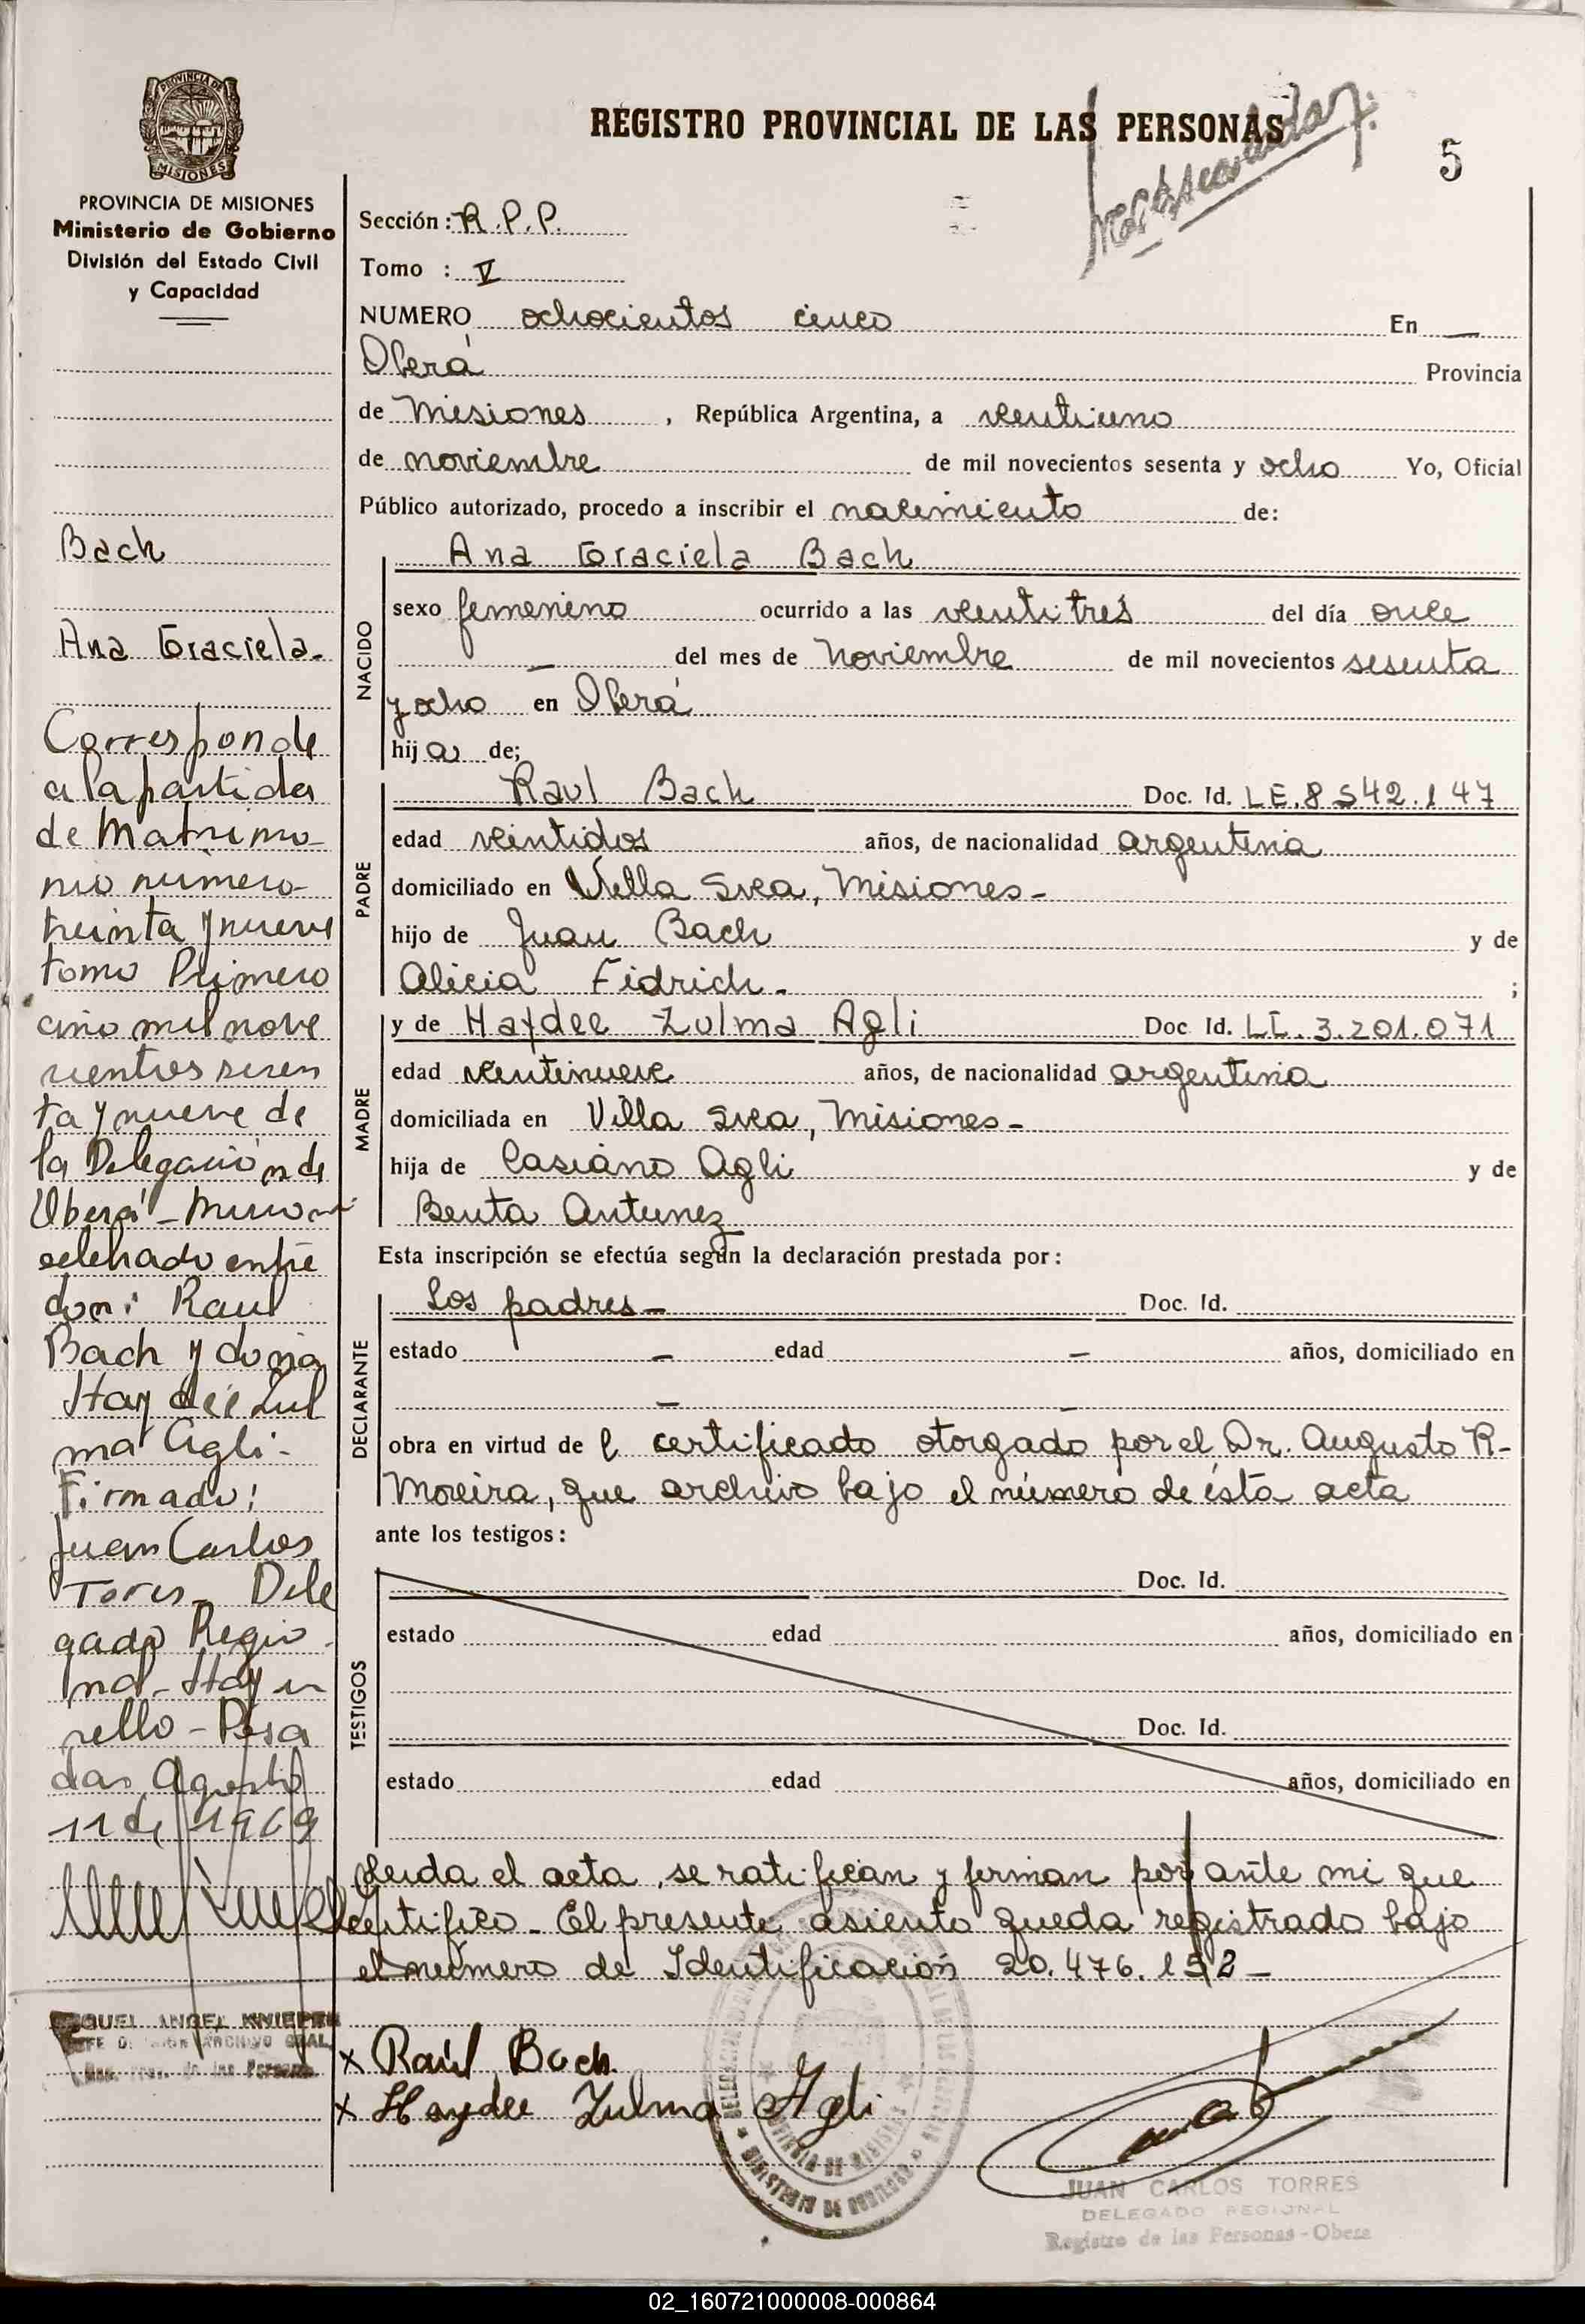 PROVINCIA DE
MISIONES
PROVINCIA DE MISIONES
Ministerio de Gobierno
División del Estado Civil
y Capacidad
REGISTRO PROVINCIAL DE LAS PERSONAS
5
Sección: R.P.P.
Tomo : V
NUMERO ochocientos cinco En —
Oberá Provincia
de Misiones , República Argentina, a veintiuno
de noviembre de mil novecientos sesenta y ocho Yo, Oficial
Público autorizado, procedo a inscribir el nacimiento de:
Ana Graciela Bach
NACIDO
sexo femenino ocurrido a las veintitrés del día once
— del mes de Noviembre de mil novecientos sesenta
y ocho en Oberá
hij a de;
PADRE
Raul Bach Doc. Id. LE.8542.147
edad veintidos años, de nacionalidad argentina
domiciliado en Villa Svea, Misiones-
hijo de Juan Bach y de
Alicia Fidrich- ;
MADRE
y de Haydee Zulma Agli Doc Id. LC.3.201.071
edad veintinueve años, de nacionalidad argentina
domiciliada en Villa Svea, Misiones-
hija de Casiano Agli y de
Benta Antunez
Esta inscripción se efectúa según la declaración prestada por:
DECLARANTE
Los padres- Doc. Id.
estado — edad — años, domiciliado en
— —
obra en virtud de l certificado otorgado por el Dr. Augusto R-
Moreira, que archivo bajo el número de ésta acta
ante los testigos:
TESTIGOS
Doc. Id.
estado edad años, domiciliado en
Doc. Id.
estado edad años, domiciliado en
Leida el acta, se ratifican y firman por ante mi que
certifico- El presente asiento queda registrado bajo
el número de Identificación 20.476.152-
x Raúl Bach.
x Haydee Zulma Agli
JUAN CARLOS TORRES
DELEGADO REGIONAL
Registro de las Personas - Obera
Bach
Ana Graciela-
Corresponde
a la partida
de Matrimo-
nio número-
treinta y nueve
tomo Primero
año mil nove
cientos sesen
ta y nueve de
la Delegación de
Oberá - Misiones
celebrado entre
don: Raul
Bach y doña
Haydeé Zul
ma Agli-
Firmado:
Juan Carlos
Torres- Dele
gado Regio-
nal- Hay un
sello - Posa
das, Agosto
11 de 1969
MIGUEL ANGEL
ARCHIVO GRAL
de las Personas
02_160721000008-000864